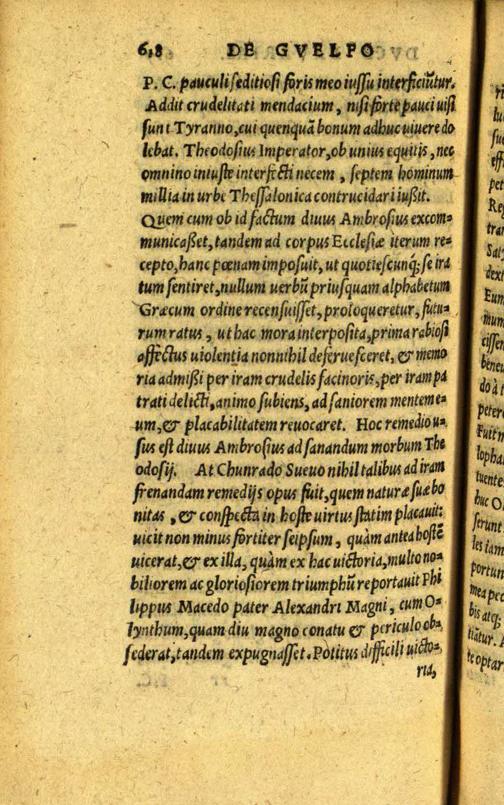 618 DE GVELFO
P. C. pauculi seditiosi foris meo iussu interficiũtur.
Addit crudelitati mendacium, nisi forte pauci uisi
sunt Tyranno, cui quenquã bonum adhuc uiuere do
lebat. Theodosius Imperator, ob unius equitis, nec
omnino iniuste interfecti necem, septem hominum
millia in urbe Thessalonica contrucidari iußit.
Quem cum ob id factum diuus Ambrosius excom=
municaßet, tandem ad corpus Ecclesiæ iterum re=
cepto, hanc pœnam imposuit, ut quotiescunq; se ira
tum sentiret, nullum uerbũ priusquam alphabetum
Græcum ordine recensuisset, proloqueretur, futu=
rum ratus, ut hac mora interposita, prima rabiosi
affectus uiolentia nonnihil deferuesceret, & memo
ria admißi per iram crudelis facinoris, per iram pa
trati delicti, animo subiens, ad saniorem mentem e=
um, & placabilitatem reuocaret. Hoc remedio u=
sus est diuus Ambrosius ad sanandum morbum The
odosij. At Chunrado Sueuo nihil talibus ad iram
frenandam remedijs opus fuit, quem naturæ suæ bo
nitas, & conspecta in hoste uirtus statim placauit:
uicit non minus fortiter seipsum, quàm antea hostẽ
uicerat, & ex illa, quàm ex hac uictoria, multo no=
biliorem ac gloriosiorem triumphũ reportauit Phi
lippus Macedo pater Alexandri Magni, cum O=
lynthum, quam diu magno conatu & periculo ob=
sederat, tandem expugnasset. Potitus difficili uicto=
ria,